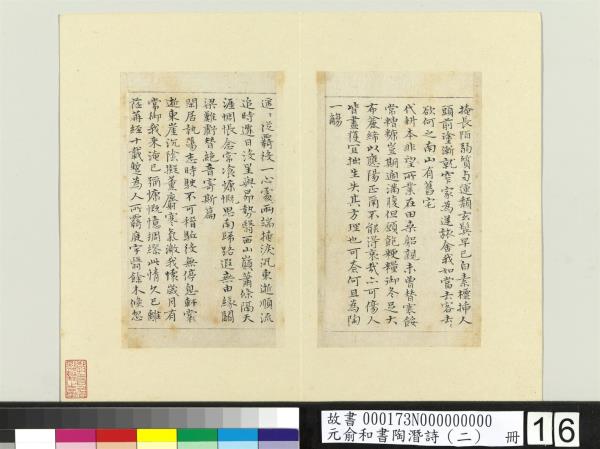 掩長陌弱質与運頹玄鬢早已白素標插人
頭前塗漸就窄家為逆旅舍我如當去客去〻
欲何之南山有舊宅
代耕本非望所業在田桑躬親未曾替寒餒
常糟糠豈期過滿腹但願飽粳糧御冬足大
布麄絺以應陽正爾不能得哀哉亦可傷人
皆盡獲宜拙生失其方理也可奈何且為陶
一觴
遙〻從羈役一心處兩端掩淚汎東逝順流
追時遷日沒星與昴勢翳西山巔蕭條隔天
涯惆悵念常飡慷慨思南歸路遐無由緣關
梁難虧替絕音寄斯篇
閑居執蕩志時駛不可稽駈役無停息軒裳
逝東崖沉陰擬薰麝寒氣激我懷歲月有
常御我來淹已彌慷慨憶綢繆此情久已離
荏苒經十載暫為人所羈庭宇翳餘木倏忽
故書 000173N000000000
元俞和書陶潛詩(二) 冊
16